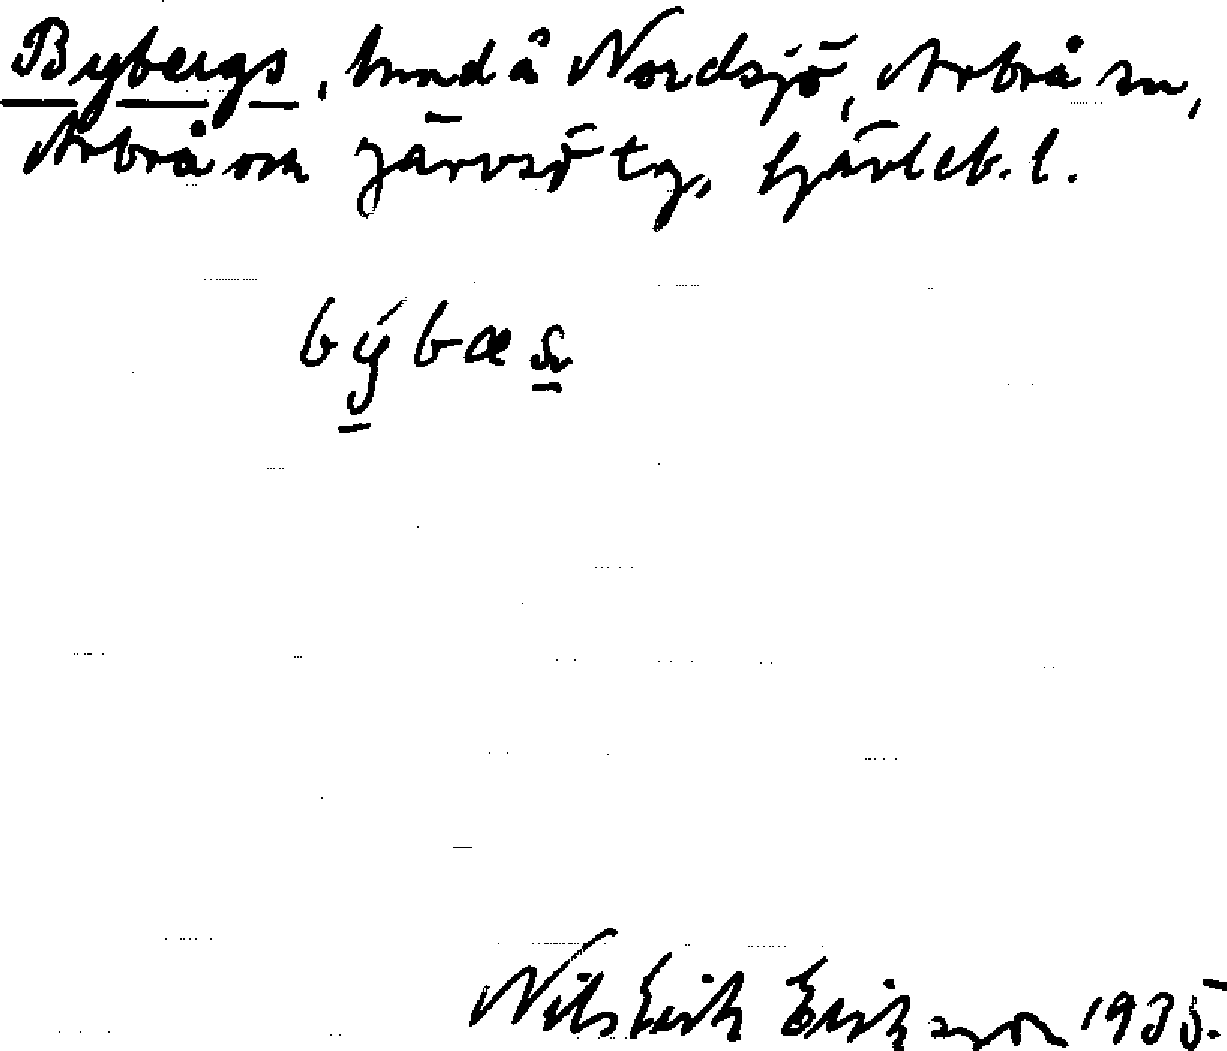 Bybergs, hmd å Nordsjö, Arbrå sn,
Arbrå och Järvsö tg, Gävleb. l.
býbæs
Nils Erik Erikson 1935.